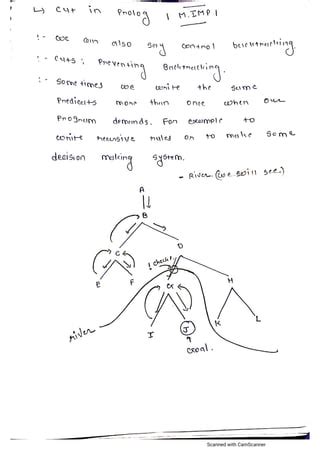 ↳ Cut in Prolog | M.IMP.|
:- we can also say control backtracking.
:- Cuts : Preventing Backtracking.
:- Sometimes we write the same
Predicats more than once when our
Program demands. For example to
write recursive rules or to make some
decision making system.
- River (we will see)
A
B
C D
! check!
E F G H
river
I J K L
Goal.
Scanned with CamScanner